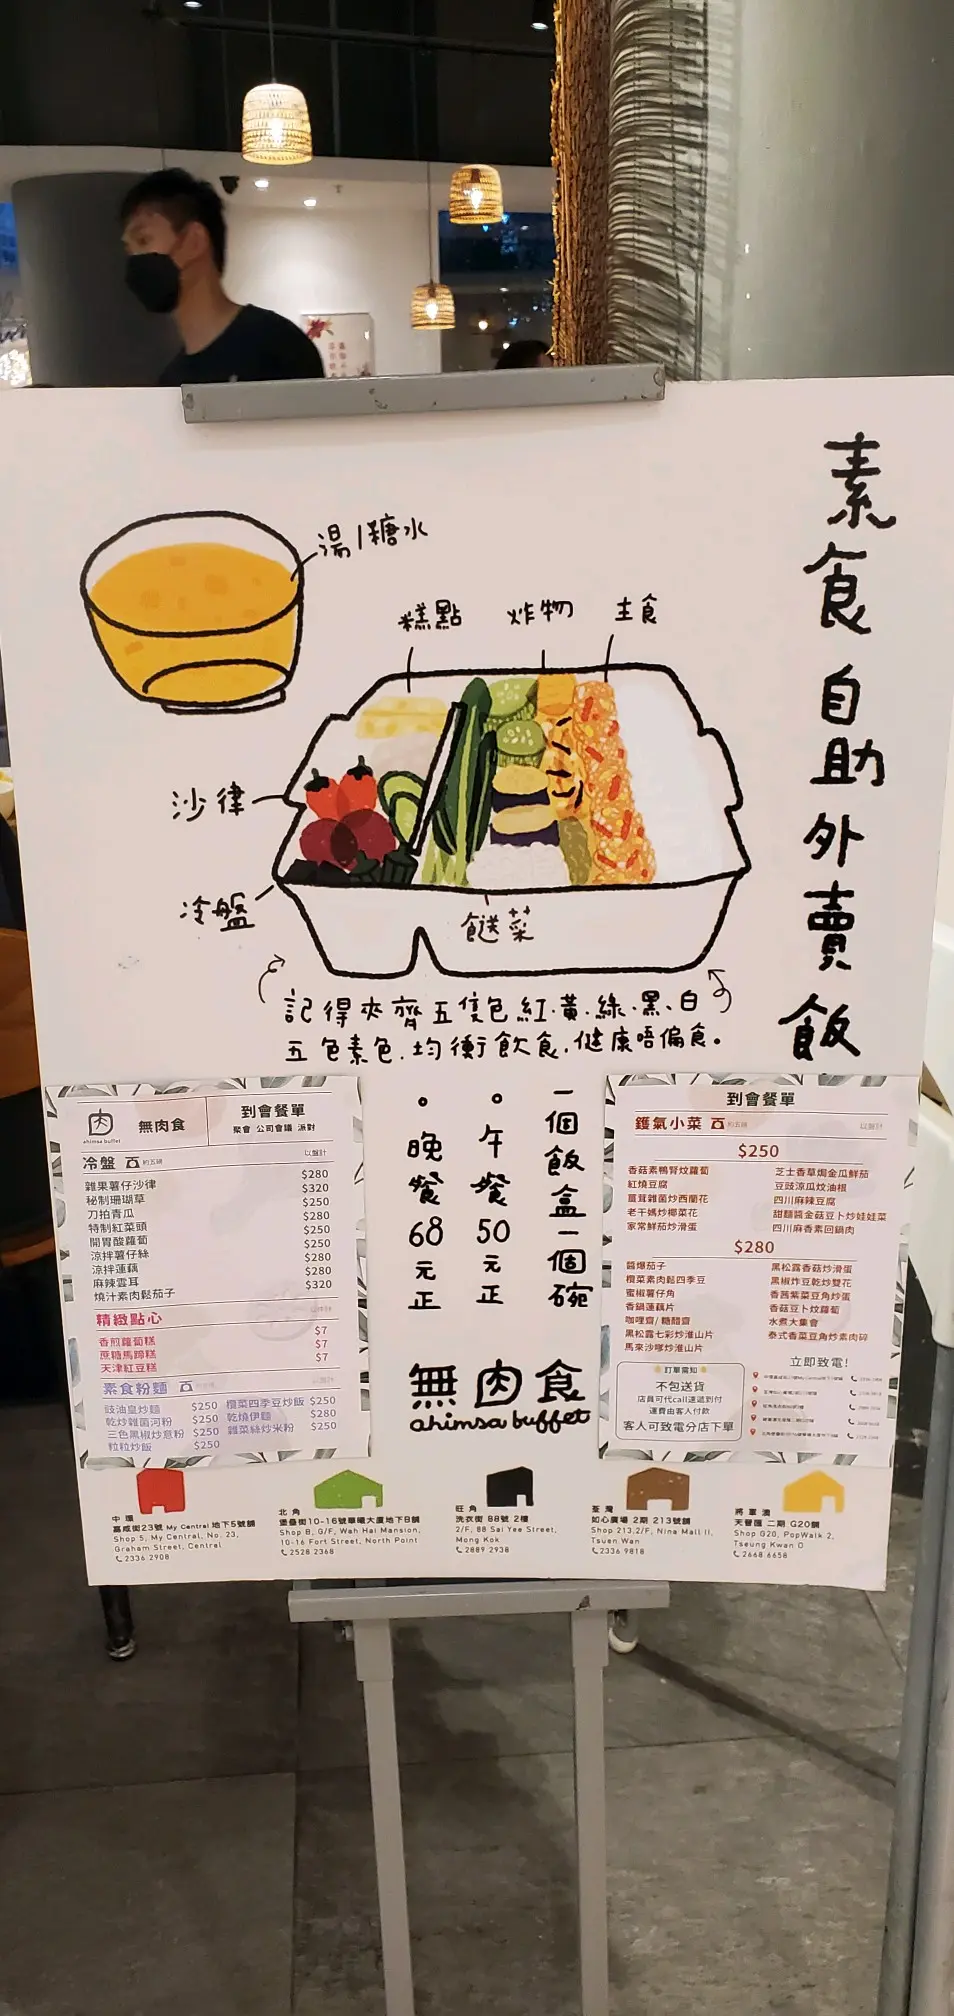 素食自助外賣飯
湯/糖水
糕點
炸物
主食
沙律
冷盤
餸菜
記得夾齊五隻色紅.黃.綠.黑.白
五色素色.均衡飲食.健康唔偏食。
一個飯盒一個碗
。午餐50元正
。晚餐68元正
無肉食
ahimsa buffet
肉
ahimsa buffet
無肉食
到會餐單
聚會 公司會議 派對
冷盤
以盤計
雜果薯仔沙律 $280
秘制珊瑚草 $320
刀拍青瓜 $250
特制紅菜頭 $280
開胃酸蘿蔔 $250
涼拌薯仔絲 $250
涼拌蓮藕 $280
麻辣雲耳 $280
燒汁素肉鬆茄子 $320
精緻點心
香煎蘿蔔糕 $7
蔗糖馬蹄糕 $7
天津紅豆糕 $7
素食粉麵
豉油皇炒麵 $250
乾炒雜菌河粉 $250
三色黑椒炒意粉 $250
粒粒炒飯 $250
欖菜四季豆炒飯 $250
乾燒伊麵 $280
雜菜絲炒米粉 $250
到會餐單
鑊氣小菜
以盤計
$250
香菇素鴨腎炆蘿蔔
紅燒豆腐
薑茸雜菌炒西蘭花
老干媽炒椰菜花
家常鮮茄炒滑蛋
芝士香草焗金瓜鮮茄
豆豉涼瓜炆油根
四川麻辣豆腐
甜麵醬金菇豆卜炒娃娃菜
四川麻香素回鍋肉
$280
醬爆茄子
欖菜素肉鬆四季豆
蜜椒薯仔角
香鍋蓮藕片
咖哩齋/糖醋齋
黑松露七彩炒淮山片
馬來沙嗲炒淮山片
黑松露香菇炒滑蛋
黑椒炸豆乾炒雙花
香茜紫菜豆角炒蛋
香菇豆卜炆蘿蔔
水煮大集會
泰式香菜豆角炒素肉碎
訂單需知
不包送貨
店員可代call速遞到付
運費由客人付款
客人可致電分店下單
立即致電!
中環
嘉咸街23號 My Central 地下5號舖
Shop 5, My Central, No. 23,
Graham Street, Central
2336 2908
北角
堡壘街10-16號華曦大廈地下B舖
Shop B, G/F, Wah Hai Mansion,
10-16 Fort Street, North Point
2528 2368
旺角
洗衣街 88號 2樓
2/F, 88 Sai Yee Street,
Mong Kok
2889 2938
荃灣
如心廣場 2期 213號舖
Shop 213,2/F, Nina Mall II,
Tsuen Wan
2336 9818
將軍澳
天晉匯 二期 G20舖
Shop G20, PopWalk 2,
Tseung Kwan O
2668 6658